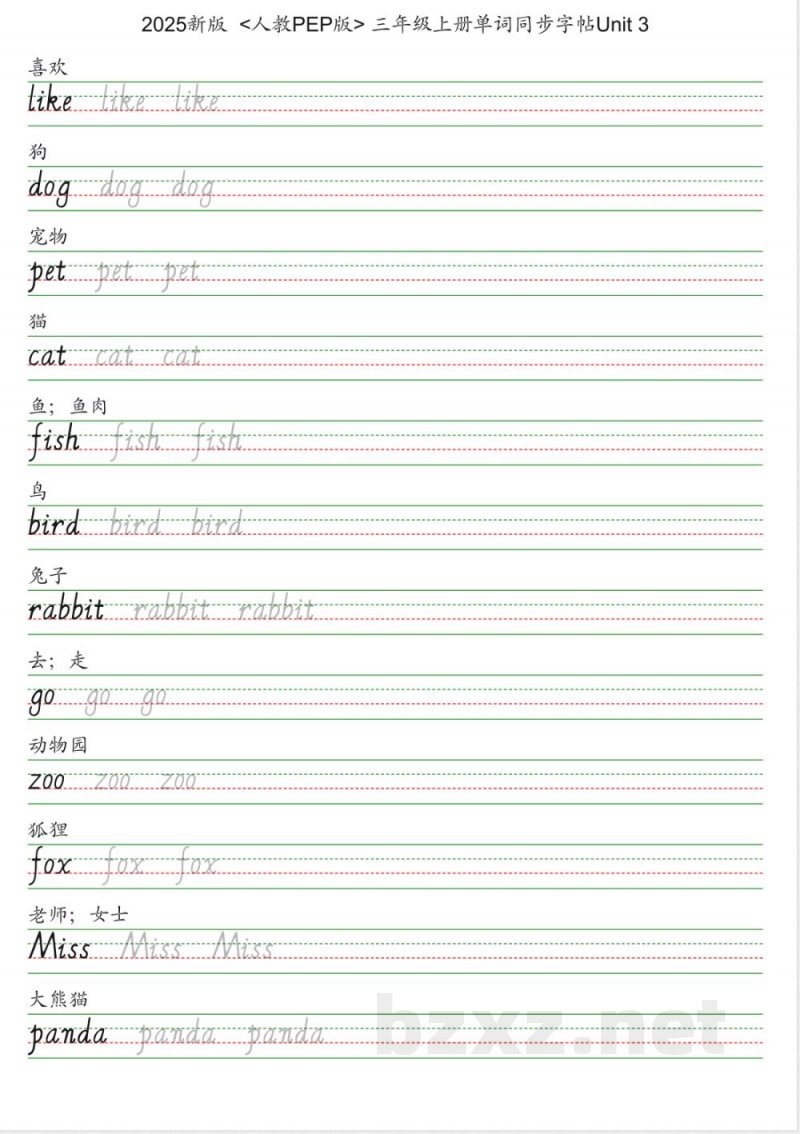 2025新版 <人教PEP版> 三年级上册单词同步字帖Unit 3
喜欢
like like like
狗
dog dog dog
宠物
pet pet pet
猫
cat cat cat
鱼；鱼肉
fish fish fish
鸟
bird bird bird
兔子
rabbit rabbit rabbit
去；走
go go go
动物园
zoo zoo zoo
狐狸
fox fox fox
老师；女士
Miss Miss Miss
大熊猫
panda panda panda
bzxz.net